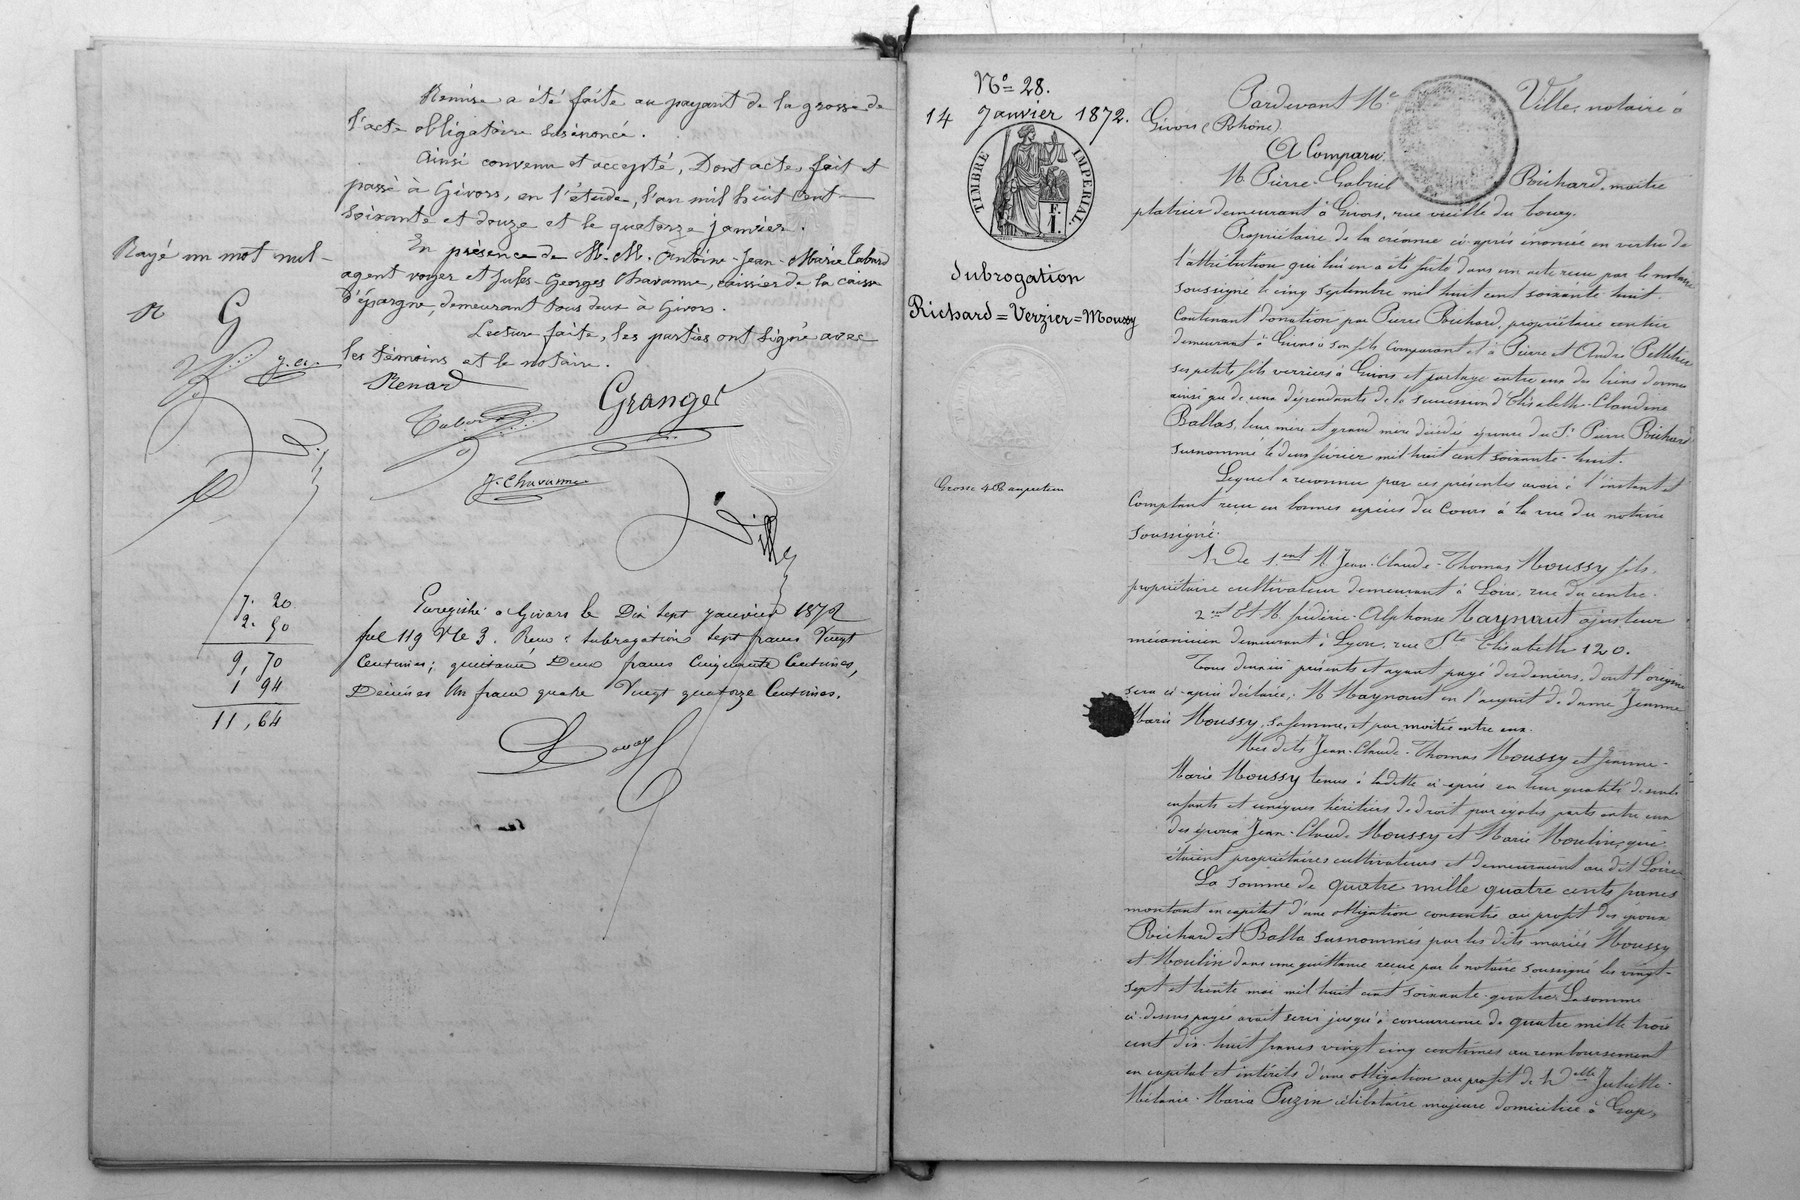 Remise a été faite au payant de la grosse de
l'acte obligatoire susénoncé.
Ainsi convenu et accepté, Dont acte, fait et
passé à Givors, en l'étude, l'an mil huit cent
soixante et douze et le quatorze janvier.
En présence de M.M. Antoine-Jean-Marie Tabard
agent voyer et Jules-Georges Chavanne, caissier de la caisse
d'épargne, demeurant tous deux à Givors.
Lecture faite, les parties ont signé avec
les témoins et le notaire.
Rayé un mot nul
R G
J. C.
Renard
Granger
Tabard
J. Chavanne
Ville
Enregistré à Givors le Dix sept janvier 1872
fol 119 Vº C 3. Reçu: subrogation sept francs Vingt
Centimes; quittance Deux francs Cinquante Centimes,
Décimes Un franc quatre Vingt quatorze Centimes.
7. 20
2. 50
9, 70
1 94
11, 64
Nº 28.
14 Janvier 1872.
TIMBRE IMPERIAL.
F. I.
Subrogation
Richard = Verzier = Moussy
Grosse
Pardevant Me Ville, notaire à
Givors (Rhône)
A Comparu
M. Pierre-Gabriel Richard, maître
platrier demeurant à Givors, rue vieille du bourg.
Propriétaire de la créance ci-après énoncée en vertu de
l'attribution qui lui en a été faite dans un acte reçu par le notaire
soussigné le cinq septembre mil huit cent soixante-huit.
Contenant donation par Pierre Richard, propriétaire rentier
demeurant à Givors à son fils comparant et à Pierre et André Pelletier
ses petits fils verriers à Givors et partage entre eux des biens donnés
ainsi que de ceux dépendants de la succession d'Elisabeth-Claudine
Ballas, leur mère et grand mère décédée épouse du Sr Pierre Richard
susnommé le deux février mil huit cent soixante-huit.
Lequel a reconnu par ces présentes avoir à l'instant et
comptant reçu en bonnes espèces du Cours à la vue du notaire
soussigné.
1º De 1.ent M. Jean-Claude-Thomas Moussy fils,
propriétaire cultivateur demeurant à Loire, rue du centre.
2.ent Et M. frédéric-Alphonse Maynaut ajusteur
mécanicien demeurant à Lyon, rue Ste Elisabeth 120.
Tous deux ici présents et ayant payé des deniers, dont l'origine
sera ci-après déclarée, M. Maynaut en l'acquit de dame Jeanne
Marie Moussy, sa femme, et par moitié entre eux.
Mes dits Jean-Claude-Thomas Moussy et Jeanne-
Marie Moussy tenus à la dette ci-après en leur qualité de seuls
enfants et uniques héritiers de droit par égales parts entre eux
des époux Jean-Claude Moussy et Marie Moulin, qui
étaient propriétaires cultivateurs et demeuraient au dit Loire.
La somme de quatre mille quatre cents francs
montant en capital d'une obligation consentie au profit des époux
Richard et Balla susnommés par les dits mariés Moussy
et Moulin dans une quittance reçue par le notaire soussigné les vingt-
sept et trente mai mil huit cent soixante-quatre. La somme
ci-dessus payée avait servi jusqu'à concurrence de quatre mille trois
cent dix-huit francs vingt cinq centimes au remboursement
en capital et intérêts d'une obligation au profit de Delle Juliette-
Mélanie-Maria Puzin célibataire majeure domiciliée à Gap,